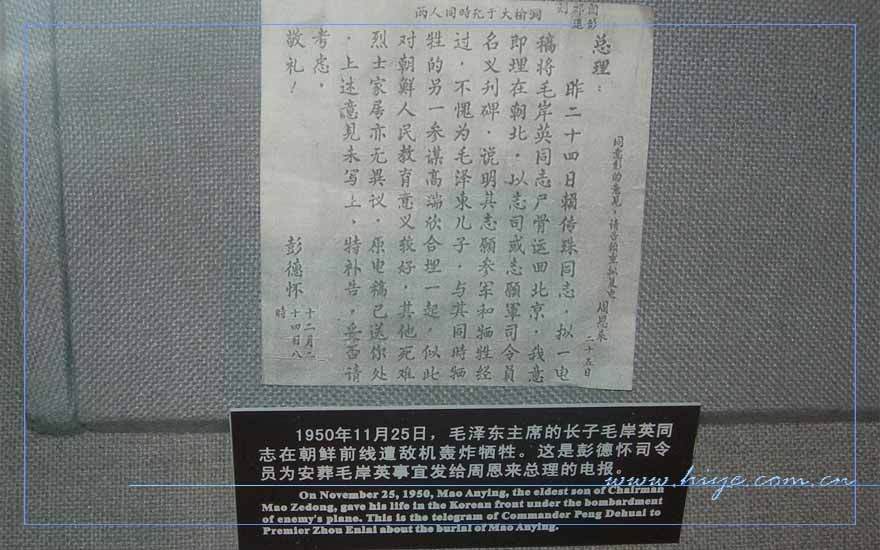 两人同時死于大榆洞
同意彭的意见，请告赖重拟复电 周恩来
二十五日
总理：
昨二十四日賴传珠同志，拟一电
稿将毛岸英同志尸骨运回北京，我意
即埋在朝北，以志司或志願軍司令員
名义刊碑，说明其志願参军和牺牲经
过，不愧为毛泽東儿子，与其同時牺
牲的另一参谋高瑞欣合埋一起，似此
对朝鲜人民教育意义較好，其他死难
烈士家居亦无異议，原电稿已送你处
，上述意見未写上，特补告，妥否请
考虑，
敬礼！
彭德怀
十二月二
十四日八
時
1950年11月25日，毛泽东主席的长子毛岸英同
志在朝鲜前线遭敌机轰炸牺牲。这是彭德怀司令
员为安葬毛岸英事宜发给周恩来总理的电报。
On November 25, 1950, Mao Anying, the eldest son of Chairman
Mao Zedong, gave his life in the Korean front under the bombardment
of enemy's plane. This is the telegram of Commander Peng Dehuai to
Premier Zhou Enlai about the burial of Mao Anying.
www.hiye.com.cn